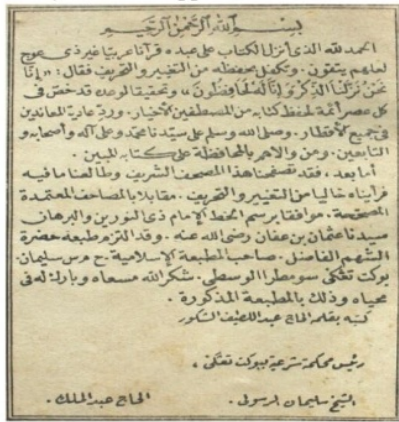 بسم الله الرحمن الرحيم
الحمد لله الذى أنزل الكتاب على عبده قرآنا عربيا غير ذى عوج
لعلهم يتقون. وتكفل بحفظه من التغيير والتحريف فقال: «إنا
نحن نزلنا الذكر وإنا له لحافظون» وتحقيقا لوعده قد خص فى
كل عصر أئمة لحفظ كتابه من المصطفين الأخيار. ورد عادية المعاندين
فى جميع الأقطار. وصلى الله وسلم على سيدنا محمد وعلى آله وأصحابه و
التابعين. ومن والاهم بالمحافظة على كتابه المبين.
أما بعد، فقد تصفحنا هذا المصحف الشريف وطالعنا ما فيه
فرأيناه خاليا من التغيير والتحريف. مقابلا بالمصاحف المعتمدة
المصححة. موافقا برسم الخط الإمام ذى النورين والبرهان
سيدنا عثمان بن عفان رضى الله عنه. وقد التزم طبعه حضرة
الشهم الفاضل. صاحب المطبعة الإسلامية. ح م س سليمان.
بوكت تڠكى سومطرا الوسطى. شكر الله مسعاه وبارك له فى
محياه وذلك بالمطبعة المذكورة.
كتبه بقلمه الحاج عبد اللطيف الشكور
رئيس محكمة شرعية ببوكت تڠكى،
الشيخ سليمان الرسولى. الحاج عبد الملك.